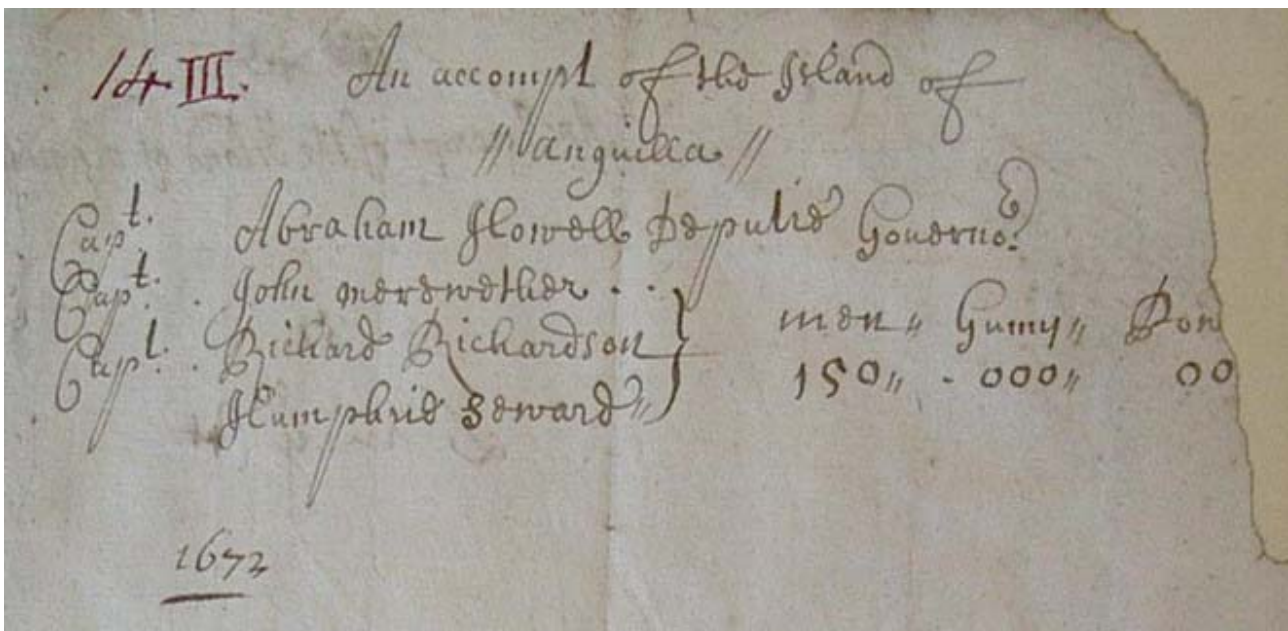 14 III. An accompt of the Island of
"anguilla"
Capt. Abraham Howell Deputie Governor.
Capt. John merewether . .
Capt. Richard Richardson } men " Gumy " Pon
Humphrie Seward " 150 " . 000 " 00
1672